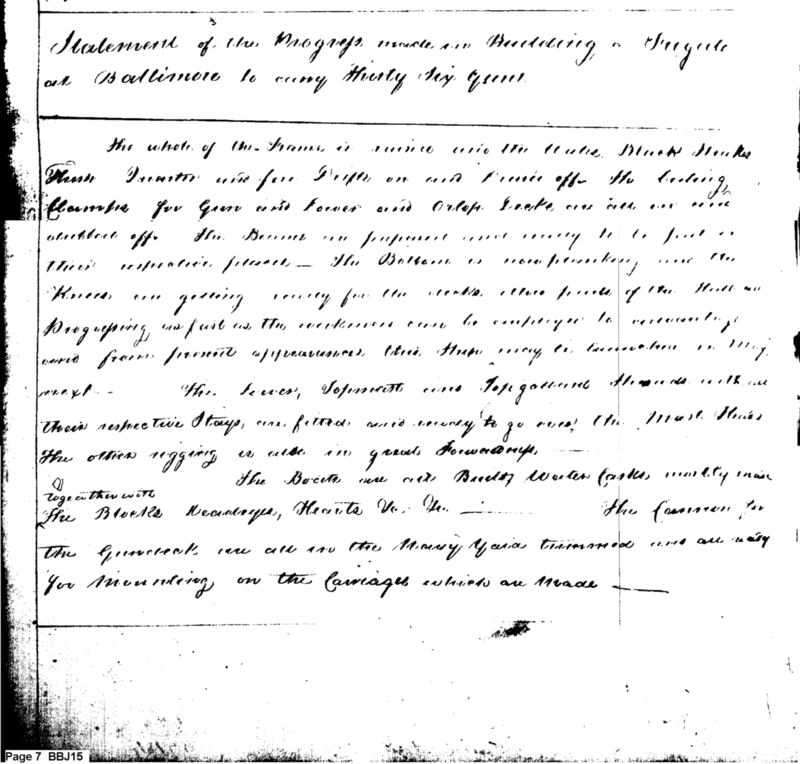 Statement of the Progress made in Building a Frigate
at Baltimore to carry Thirty Six Guns
The whole of the Frame is raised and the Wales, Black Strakes
and fore Drifts on and off The
Clamps for Gun and Lower and Orlop Decks are all in and
dubbed off. The Beams are prepared and ready to be put in
their respective places — The Bottom is now planking and the
Knees are getting ready for the decks other parts of the Hull are
Progressing as fast as the workmen can be employed to advantage
and from present appearances this Ship may be launched in May
next — The Lower, Topmast and Topgallant Shrouds with all
their respective Stays, are fitted and ready to go over the Mast Heads
The other rigging is also in great Forwardness —
The Boats are all Built, Water Casks mostly made
Together with
The Blocks Deadeyes, Hearts &c. &c. — The Cannon for
the Gundeck are all in the Navy Yard trimmed and are ready
for Mounting on the Carriages which are Made —
Page 7 BBJ15